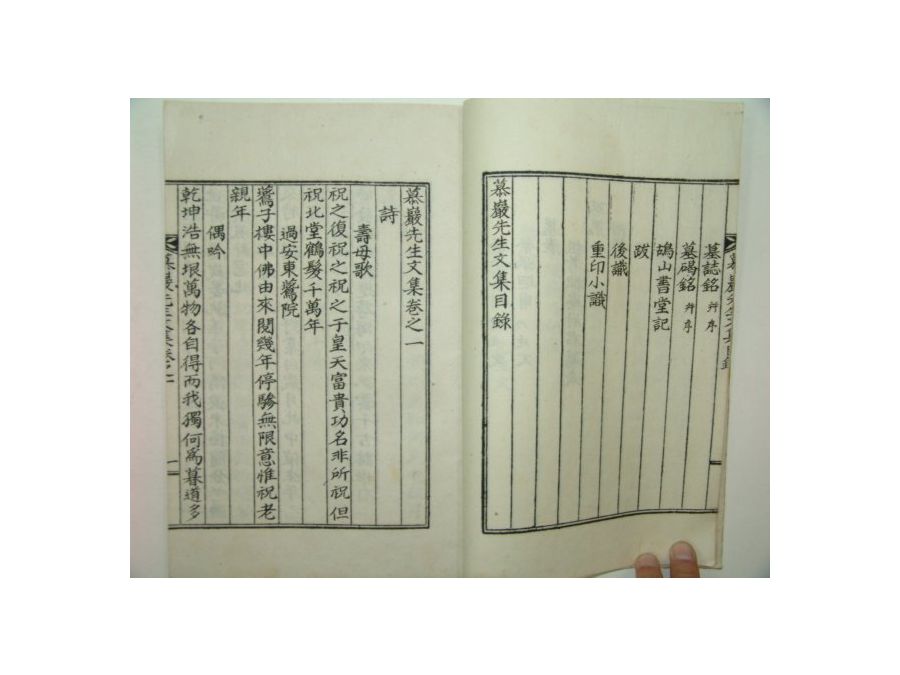 墓誌銘 并序
墓碣銘 并序
鴣山書堂記
跋
後識
重印小識
慕巖先生文集目錄
慕巖先生文集卷之一
詩
壽母歌
祝之復祝之祝之于皇天富貴功名非所祝但
祝北堂鶴髮千萬年
過安東鷰院
鷰子樓中佛由來閱幾年停驂無限意惟祝老
親年
偶吟
乾坤浩無垠萬物各自得而我獨何爲暮道多
慕巖先生文集卷之一
一